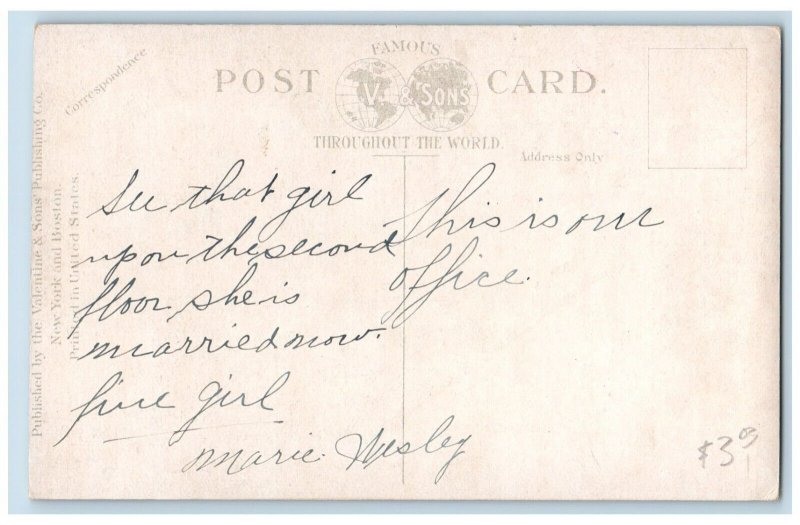 FAMOUS
POST CARD.
V. & SONS
THROUGHOUT THE WORLD.
Correspondence
Address Only
Published by the Valentine & Sons' Publishing Co.
New York and Boston.
Printed in United States.
See that girl
upon the second
floor, she is
married now.
fine girl
Marie Wesley
This is our
office.
$3.00